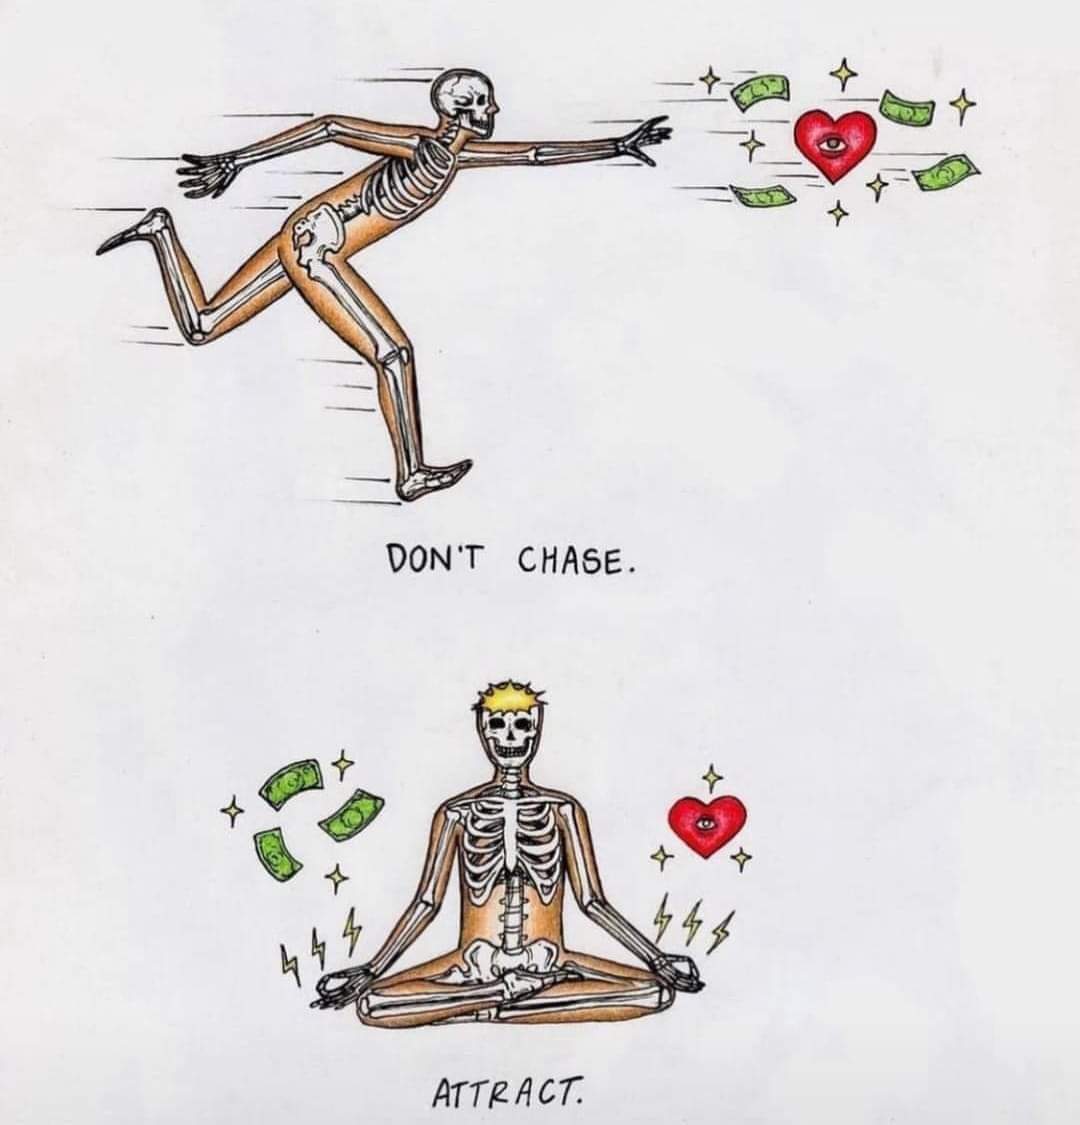 DON'T CHASE.
ATTRACT.